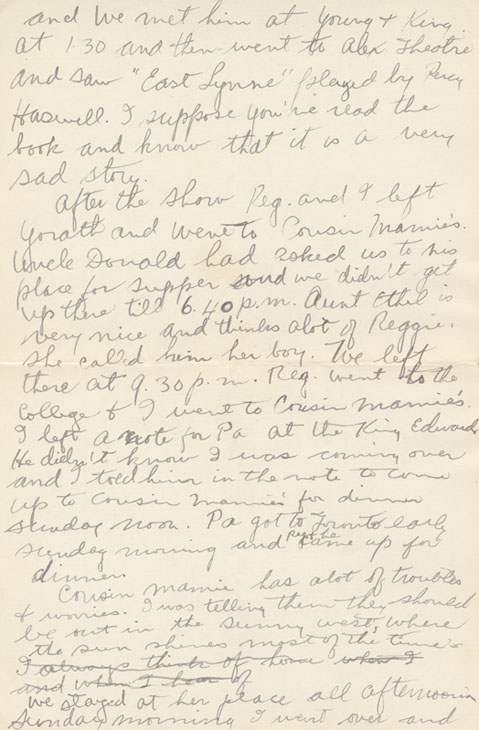 and we met him at Young & King
at 1.30 and then went to Alex Theatre
and saw "East Lynne" played by Percy
Haswell. I suppose you've read the
book and know that it is a very
sad story.
After the show Reg. and I left
Yorath and went to Cousin Mamie's.
Uncle Donald had asked us to his
place for supper and we didn't get
up there till 6.40 p.m. Aunt Ethel is
very nice and thinks alot of Reggie.
She called him her boy. We left
there at 9.30 p.m. Reg. went to the
College & I went to Cousin Mamie's.
I left a note for Pa at the King Edward
He didn't know I was coming over
and I told him in the note to come
up to Cousin Mamie's for dinner
Sunday noon. Pa got to Toronto early
Sunday morning and came up for
dinner.
Cousin Mamie has alot of troubles
& worries. I was telling them they should
be out in the sunny west, where
the sun shines most of the time.
I always think of home when I
and when I hear of
we stayed at her place all afternoon
Sunday morning I went over and